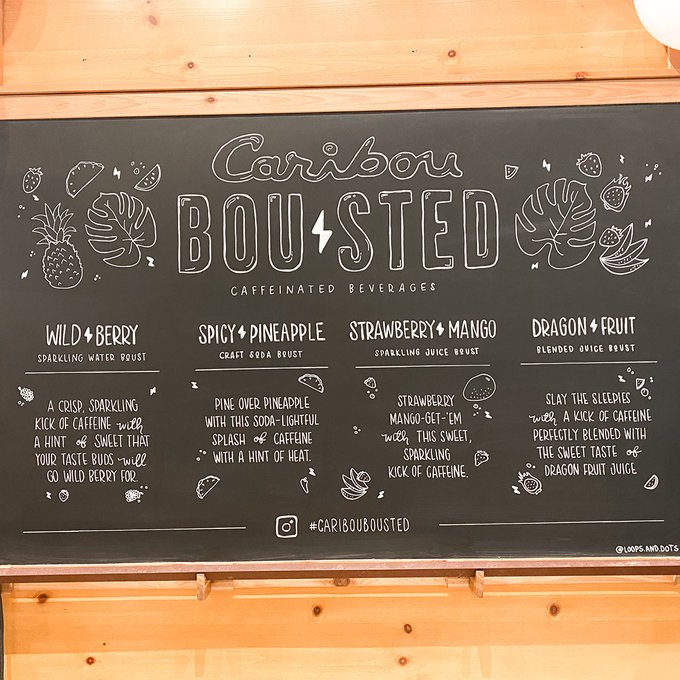 Caribou
BOU STED
CAFFEINATED BEVERAGES
WILD BERRY
SPARKLING WATER BOUST
A CRISP, SPARKLING
KICK OF CAFFEINE with
A HINT of SWEET THAT
YOUR TASTE BUDS will
GO WILD BERRY FOR.
SPICY PINEAPPLE
CRAFT SODA BOUST
PINE OVER PINEAPPLE
WITH THIS SODA-LIGHTFUL
SPLASH of CAFFEINE
WITH A HINT OF HEAT.
STRAWBERRY MANGO
SPARKLING JUICE BOUST
STRAWBERRY
MANGO-GET-'EM
with THIS SWEET,
SPARKLING
KICK OF CAFFEINE.
DRAGON FRUIT
BLENDED JUICE BOUST
SLAY THE SLEEPIES
with A KICK OF CAFFEINE
PERFECTLY BLENDED WITH
THE SWEET TASTE of
DRAGON FRUIT JUICE
#CARIBOUBOUSTED
@LOOPS.AND.DOTS